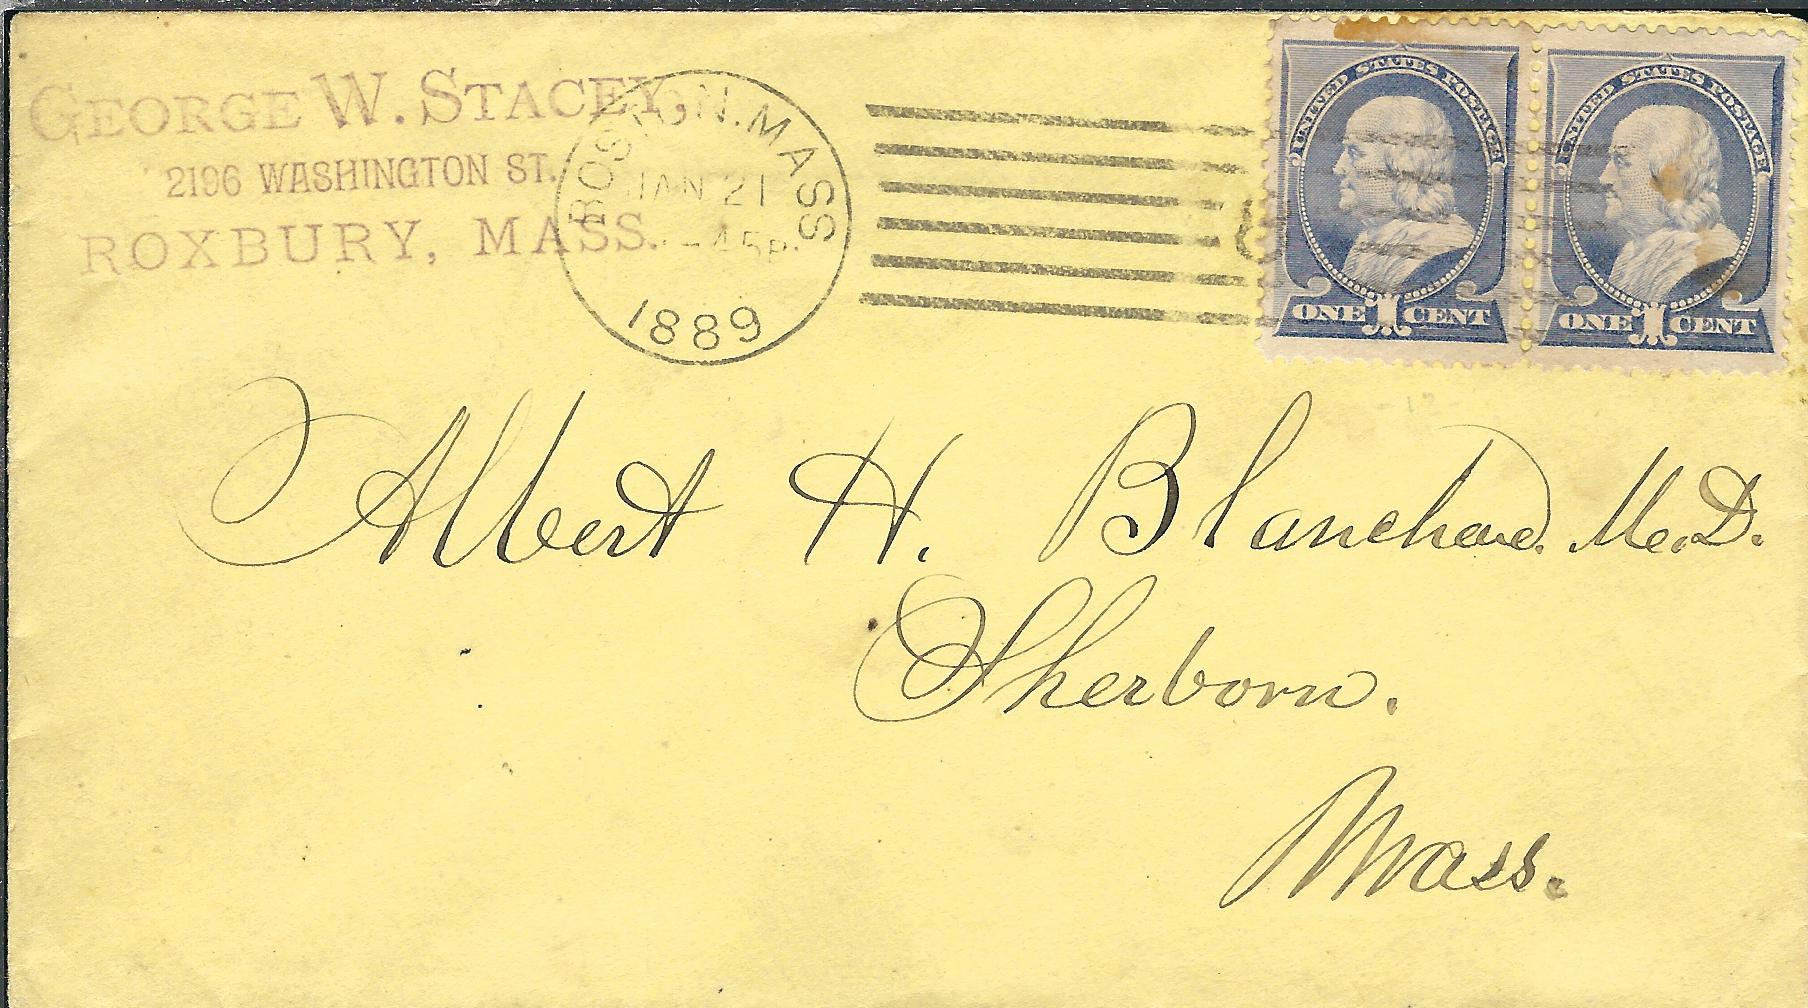 GEORGE W. STACEY,
2196 WASHINGTON ST.
ROXBURY, MASS.
BOSTON. MASS
JAN 21
45P
1889
UNITED STATES POSTAGE
ONE 1 CENT
UNITED STATES POSTAGE
ONE 1 CENT
Albert H. Blanchard. M.D.
Sherborn.
Mass.